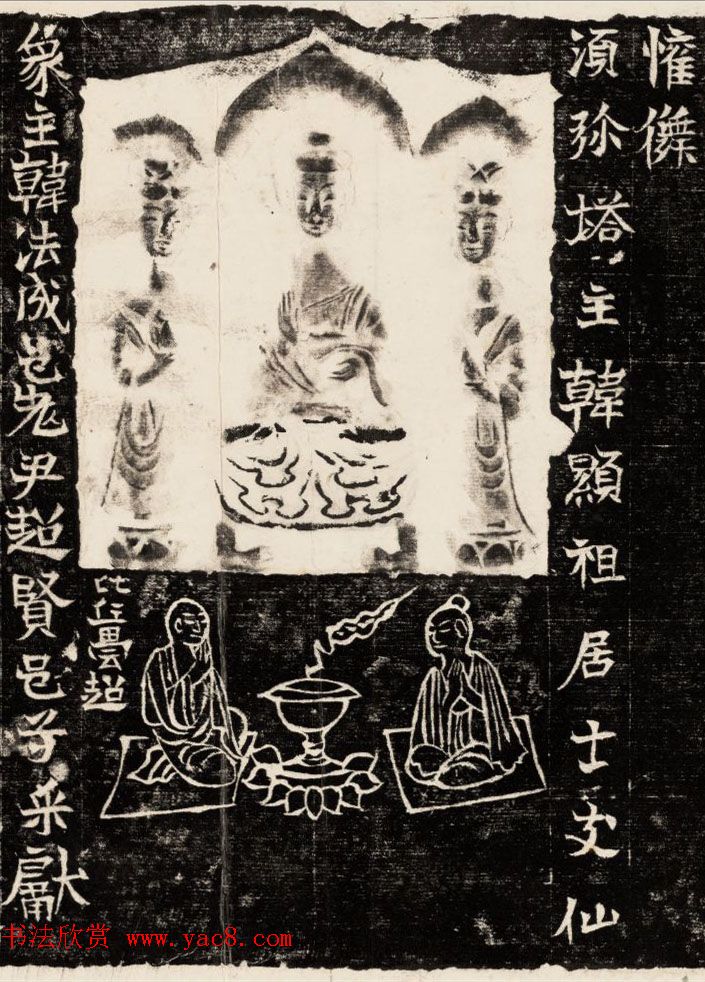 懽儛
湏弥塔主韓顯祖居士仙
比丘曇超
象主韓法成邑老尹超賢邑子采獻
书法欣赏 www.yac8.com